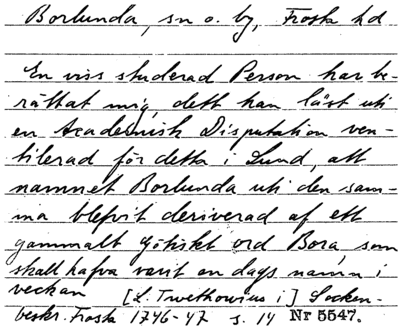 Borlunda, sn o. by, Frosta hd
En viss studerad Person har be-
rättat mig dett han läst uti
en Academisk Disputation ven-
tilerad för detta i Lund, att
namnet Borlunda uti den sam-
ma blefvit deriverad af ett
gammalt götiskt ord Bora, som
skall hafva varit en dags namn i
veckan [L. Twethowius i] Socken-
beskr. Frosta 1746-47 s. 14 Nr 5547.